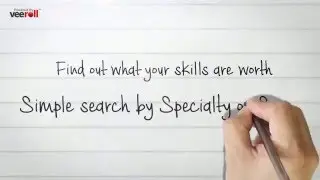 Powered By
veeroll
Find out what your skills are worth
Simple search by Specialty or